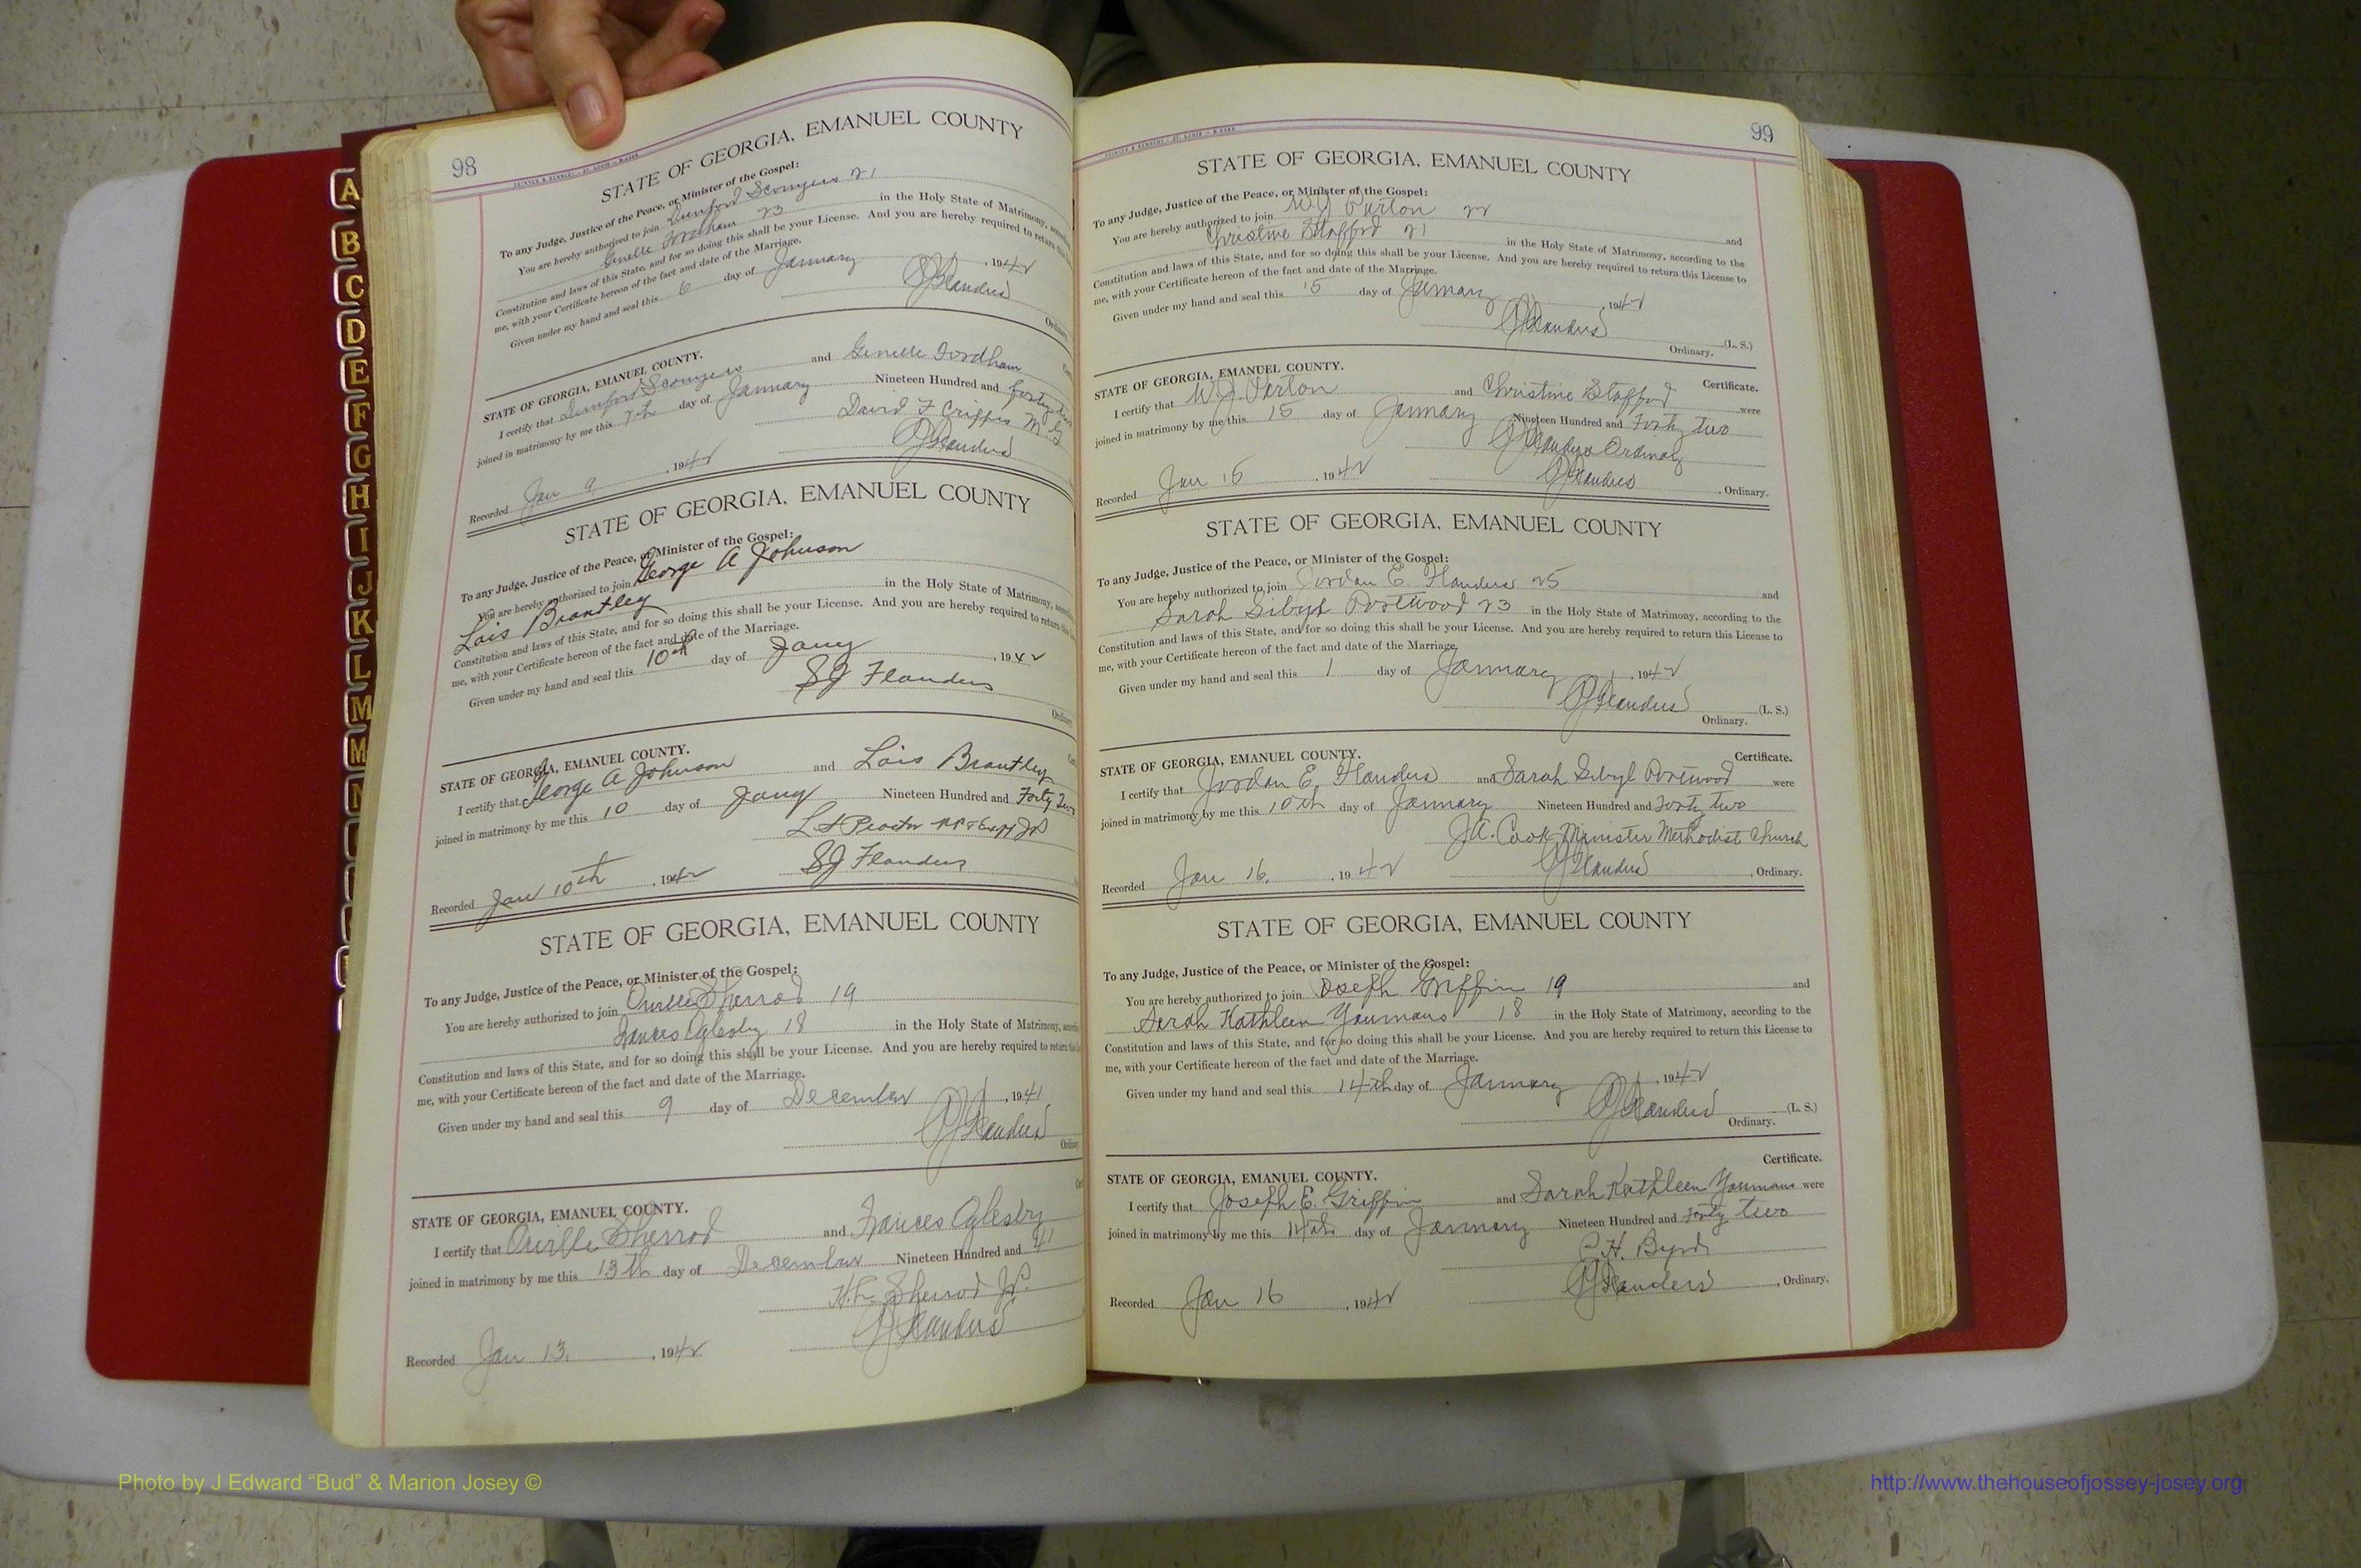 98
STATE OF GEORGIA, EMANUEL COUNTY
To any Judge, Justice of the Peace, or Minister of the Gospel:
You are hereby authorized to join Scongers 21
Genelle Fordham 23 in the Holy State of Matrimony,
Constitution and laws of this State, and for so doing this shall be your License. And you are hereby required to return
me, with your Certificate hereon of the fact and date of the Marriage.
Given under my hand and seal this 6 day of January, 1942
SJ Flanders
STATE OF GEORGIA, EMANUEL COUNTY.
I certify that Scongers and Genelle Fordham
joined in matrimony by me this 7th day of January Nineteen Hundred and Forty
David F M.G
SJ Flanders
Recorded Jan 9, 1942
STATE OF GEORGIA, EMANUEL COUNTY
To any Judge, Justice of the Peace, or Minister of the Gospel:
You are hereby authorized to join George A Johnson
Lois Brantley in the Holy State of Matrimony,
Constitution and laws of this State, and for so doing this shall be your License. And you are hereby required to return
me, with your Certificate hereon of the fact and date of the Marriage.
Given under my hand and seal this 10th day of Jany, 1942
SJ Flanders
STATE OF GEORGIA, EMANUEL COUNTY.
I certify that George A Johnson and Lois Brantley
joined in matrimony by me this 10 day of Jany Nineteen Hundred and Forty Two
Proctor
SJ Flanders
Recorded Jan 10th, 1942
STATE OF GEORGIA, EMANUEL COUNTY
To any Judge, Justice of the Peace, or Minister of the Gospel:
You are hereby authorized to join Orville Sherrod 19
Frances Oglesby 18 in the Holy State of Matrimony,
Constitution and laws of this State, and for so doing this shall be your License. And you are hereby required to return
me, with your Certificate hereon of the fact and date of the Marriage.
Given under my hand and seal this 9 day of December, 1941
SJ Flanders
STATE OF GEORGIA, EMANUEL COUNTY.
I certify that Orville Sherrod and Frances Oglesby
joined in matrimony by me this 13th day of December Nineteen Hundred and 41
Sherrod J.P.
SJ Flanders
Recorded Jan 13, 1942
99
STATE OF GEORGIA, EMANUEL COUNTY
To any Judge, Justice of the Peace, or Minister of the Gospel:
You are hereby authorized to join W.J. 22 and
Christine Stafford 21 in the Holy State of Matrimony, according to the
Constitution and laws of this State, and for so doing this shall be your License. And you are hereby required to return this License to
me, with your Certificate hereon of the fact and date of the Marriage.
Given under my hand and seal this 15 day of January, 1942
SJ Flanders (L. S.)
Ordinary.
STATE OF GEORGIA, EMANUEL COUNTY. Certificate.
I certify that W.J. and Christine Stafford were
joined in matrimony by me this 15 day of January Nineteen Hundred and Forty two
SJ Flanders Ordinary
Recorded Jan 15, 1942 SJ Flanders, Ordinary.
STATE OF GEORGIA, EMANUEL COUNTY
To any Judge, Justice of the Peace, or Minister of the Gospel:
You are hereby authorized to join Jordan E. Flanders 25 and
Sarah Sibyl 23 in the Holy State of Matrimony, according to the
Constitution and laws of this State, and for so doing this shall be your License. And you are hereby required to return this License to
me, with your Certificate hereon of the fact and date of the Marriage.
Given under my hand and seal this 1 day of January, 1942
SJ Flanders (L. S.)
Ordinary.
STATE OF GEORGIA, EMANUEL COUNTY. Certificate.
I certify that Jordan E. Flanders and Sarah Sibyl were
joined in matrimony by me this 10th day of January Nineteen Hundred and Forty two
J.A. Cook, Minister Methodist Church
Recorded Jan 16, 1942 SJ Flanders, Ordinary.
STATE OF GEORGIA, EMANUEL COUNTY
To any Judge, Justice of the Peace, or Minister of the Gospel:
You are hereby authorized to join Joseph Griffin 19 and
Sarah Kathleen Youmans 18 in the Holy State of Matrimony, according to the
Constitution and laws of this State, and for so doing this shall be your License. And you are hereby required to return this License to
me, with your Certificate hereon of the fact and date of the Marriage.
Given under my hand and seal this 14th day of January, 1942
SJ Flanders (L. S.)
Ordinary.
STATE OF GEORGIA, EMANUEL COUNTY. Certificate.
I certify that Joseph E. Griffin and Sarah Kathleen Youmans were
joined in matrimony by me this 14th day of January Nineteen Hundred and Forty two
C.H. Byrd
Recorded Jan 16, 1942 SJ Flanders, Ordinary.
A
B
C
D
E
F
G
H
I
J
K
L
M
Photo by J Edward “Bud” & Marion Josey ©
http://www.thehouseofjossey-josey.org